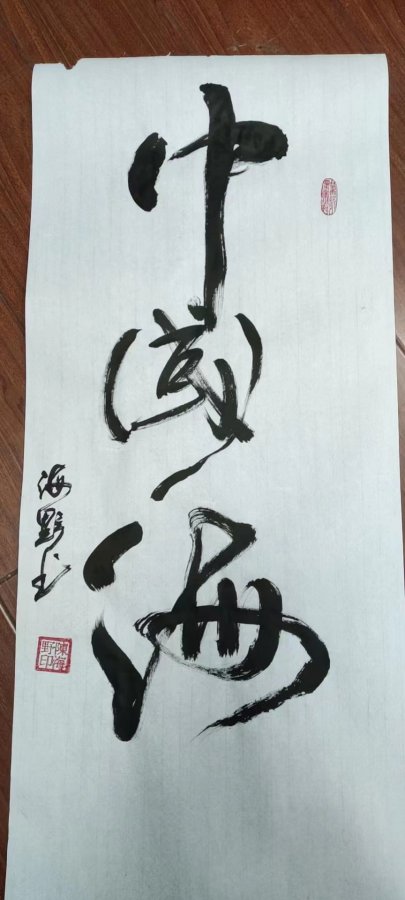 中國海
海野书
陳海野印